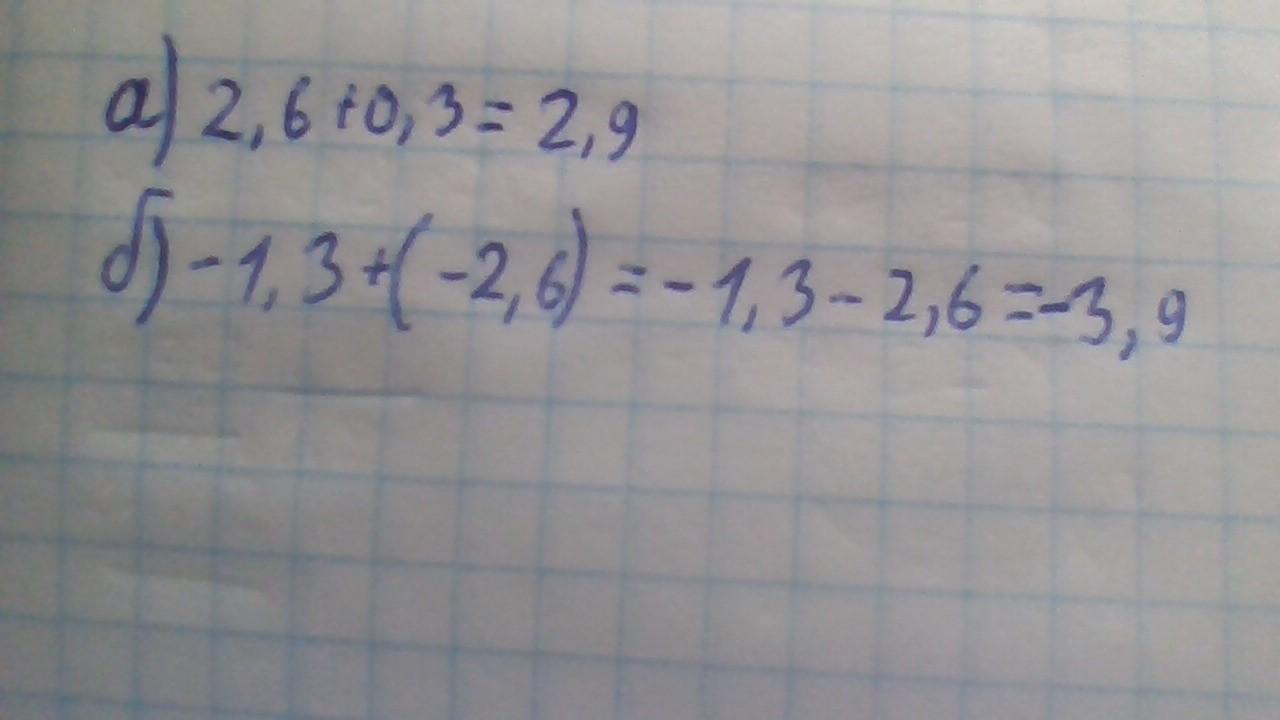 а) 2,6+0,3=2,9
б) -1,3+(-2,6)=-1,3-2,6=-3,9